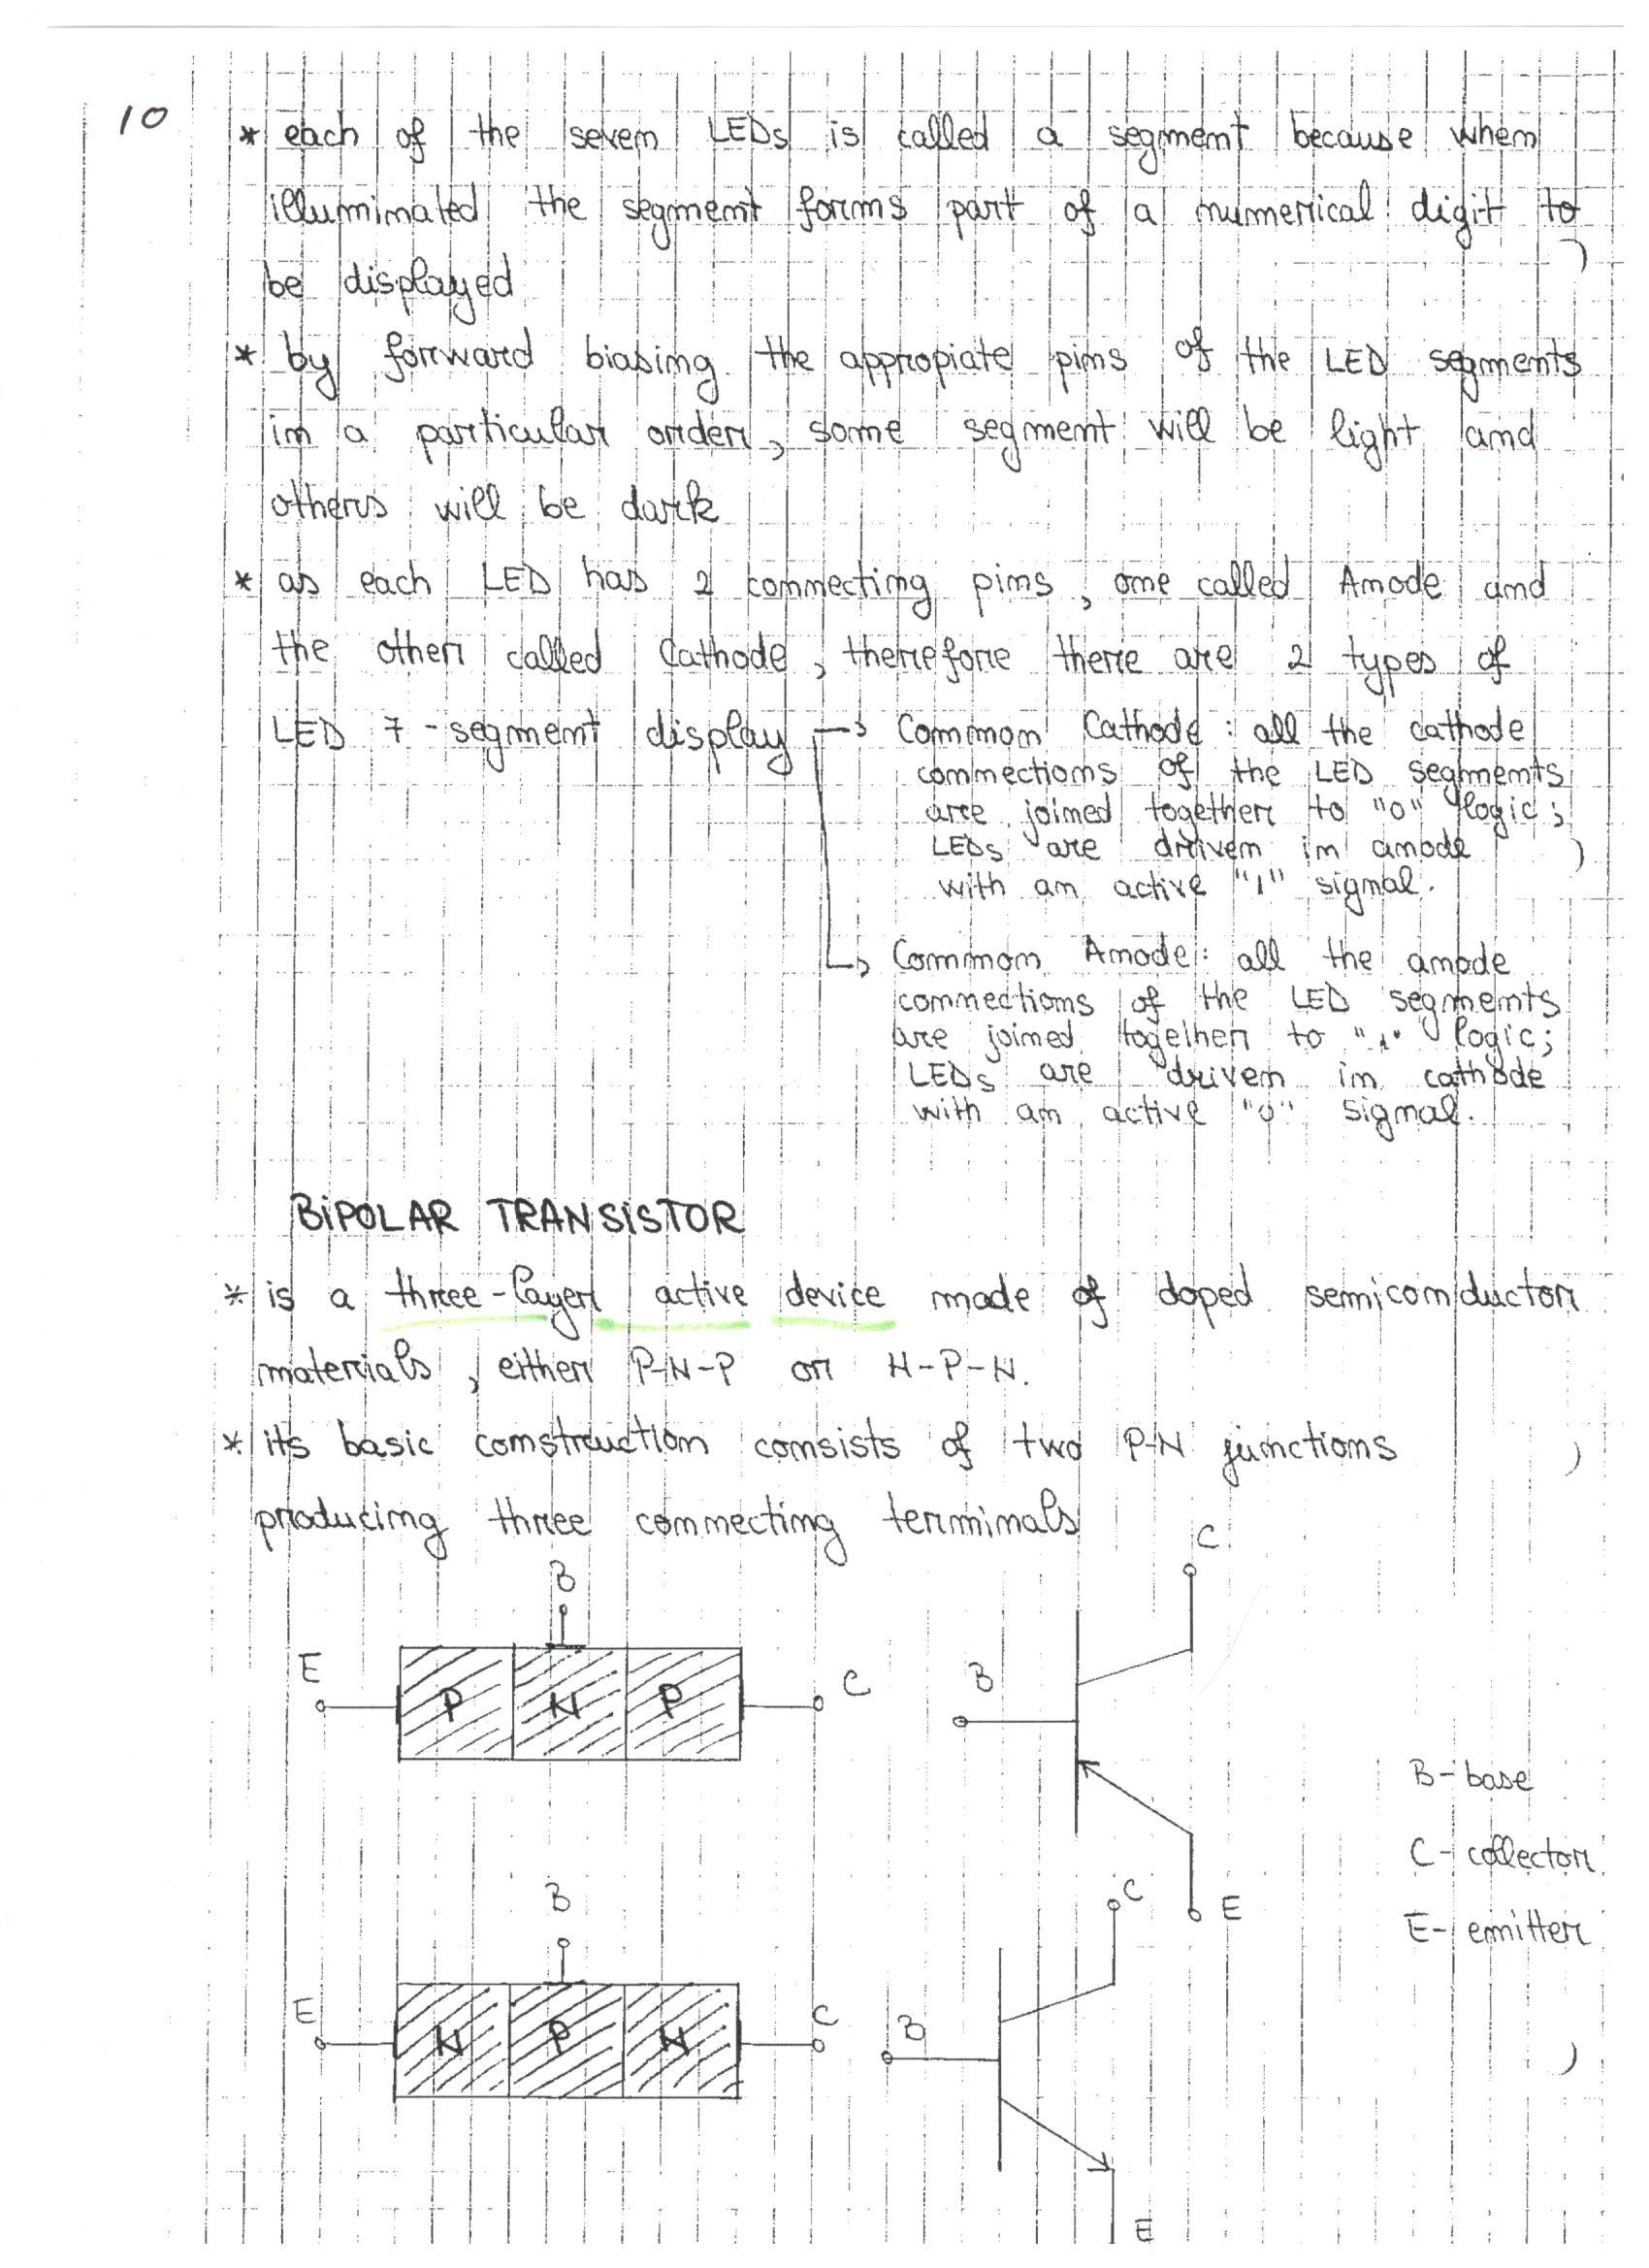 10
* each of the seven LEDs is called a segment because when
illuminated the segment forms part of a numerical digit to
be displayed
* by forward biasing the appropiate pins of the LED segments
in a particular order, some segment will be light and
others will be dark
* as each LED has 2 connecting pins, one called Anode and
the other called Cathode, therefore there are 2 types of
LED 7-segment display → Common Cathode: all the cathode
connections of the LED segments
are joined together to "0" logic;
LEDs are driven in anode
with an active "1" signal.
→ Common Anode: all the anode
connections of the LED segments
are joined together to "1" logic;
LEDs are driven in cathode
with an active "0" signal.
BIPOLAR TRANSISTOR
* is a three-layer active device made of doped semiconductor
materials, either P-N-P or N-P-N.
* its basic construction consists of two P-N junctions
producing three connecting terminals
C
B
E P N P C
B
B - base
C - collector
E
E - emitter
B
C
E N P N C
B
E